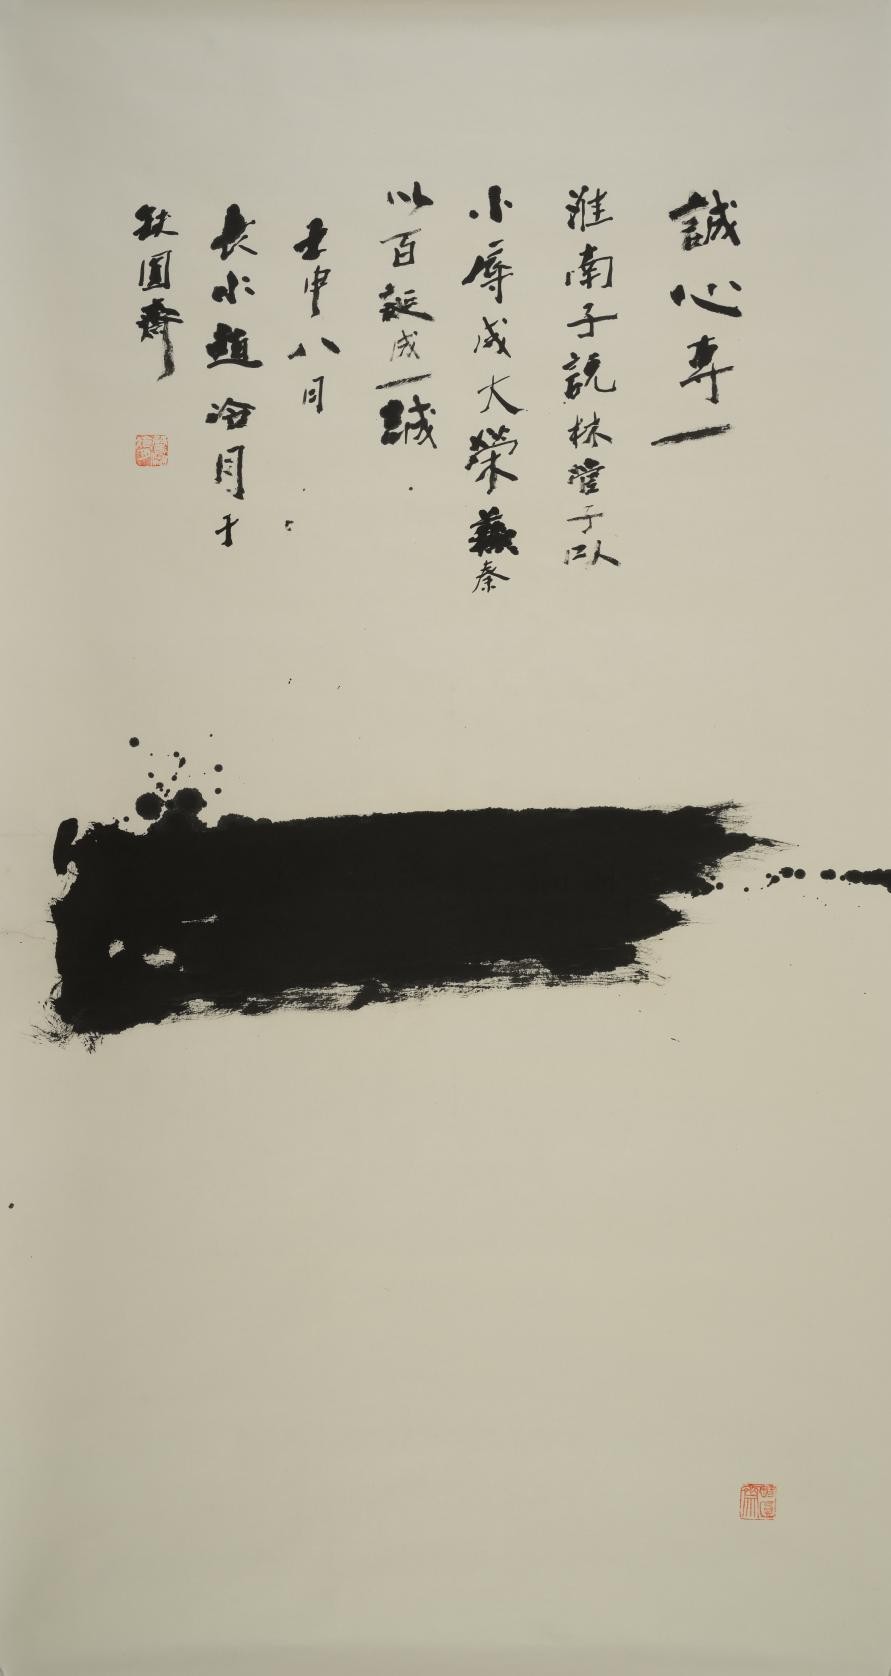 誠心專一
淮南子說林管子以
小辱成大榮蘇秦
以百誕成一誠
壬申八月
長水趙冷月于
缺圓齋